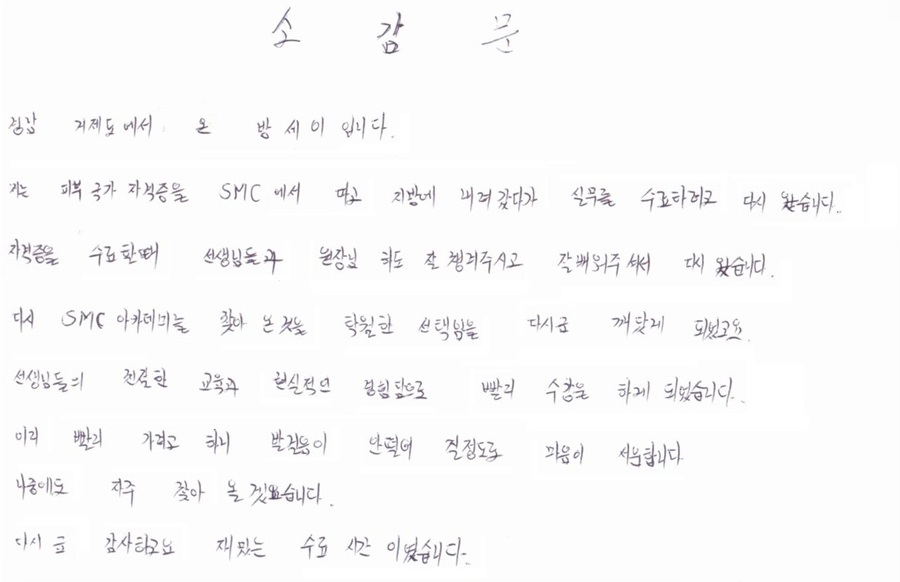 소 감 문
경남 거제도에서 온 방 세 이 입니다.
저는 피부 국가 자격증을 SMC 에서 따고 지방에 내려 갔다가 실무를 수료하려고 다시 왔습니다..
자격증을 수료 할때 선생님들과 원장님 하도 잘 챙겨주시고 잘 배워주셔서 다시 왔습니다.
다시 SMC 아카데미를 찾아 온것을 탁월한 선택임을 다시금 깨닫게 되었고요.
선생님들의 친절한 교육과 현실적인 경험담으로 빨리 수강을 하게 되었습니다..
이리 빨리 가려고 하니 발걸음이 안떨어 질정도로 마음이 서운합니다
나중에도 자주 찾아 올 습니다.
다시 금 감사하고요 재밌는 수료 시간 이였습니다..